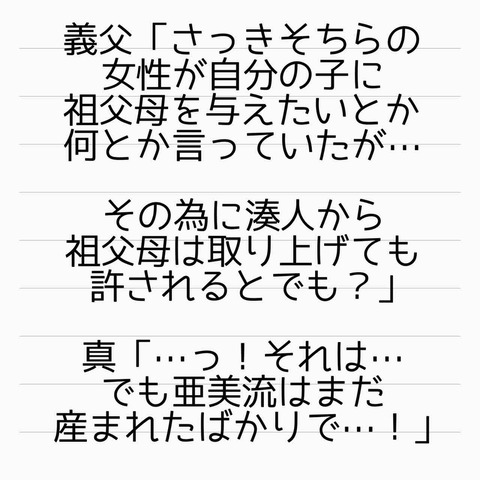 義父「さっきそちらの
女性が自分の子に
祖父母を与えたいとか
何とか言っていたが…
その為に湊人から
祖父母は取り上げても
許されるとでも？」
真「…っ！それは…
でも亜美流はまだ
産まれたばかりで…！」